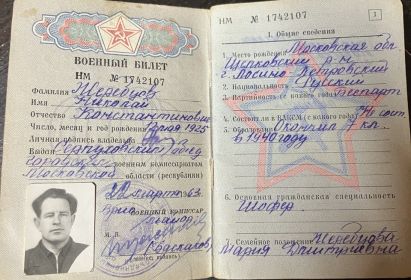 ВОЕННЫЙ БИЛЕТ
НМ № 1742107
Фамилия Жеребцов
Имя Николай
Отчество Константинович
Число, месяц и год рождения 1925
Личная подпись владельца
Выдан
военным комиссариатом
Московской области (республики)
марта 63
Военный комиссар
М. П.
НМ № 1742107
1
I. Общие сведения
1. Место рождения Московская обл
Щёлковский р-н
г. Лосино-Петровский
2. Национальность Русский
3. Партийность (с какого года) Беспарт
4. Состоял ли в ВЛКСМ (с какого года)
5. Образование Окончил 7 кл.
в 1940 году
6. Основная гражданская специальность
Шофер
7. Семейное положение Жеребцова
Мария Дмитриевна